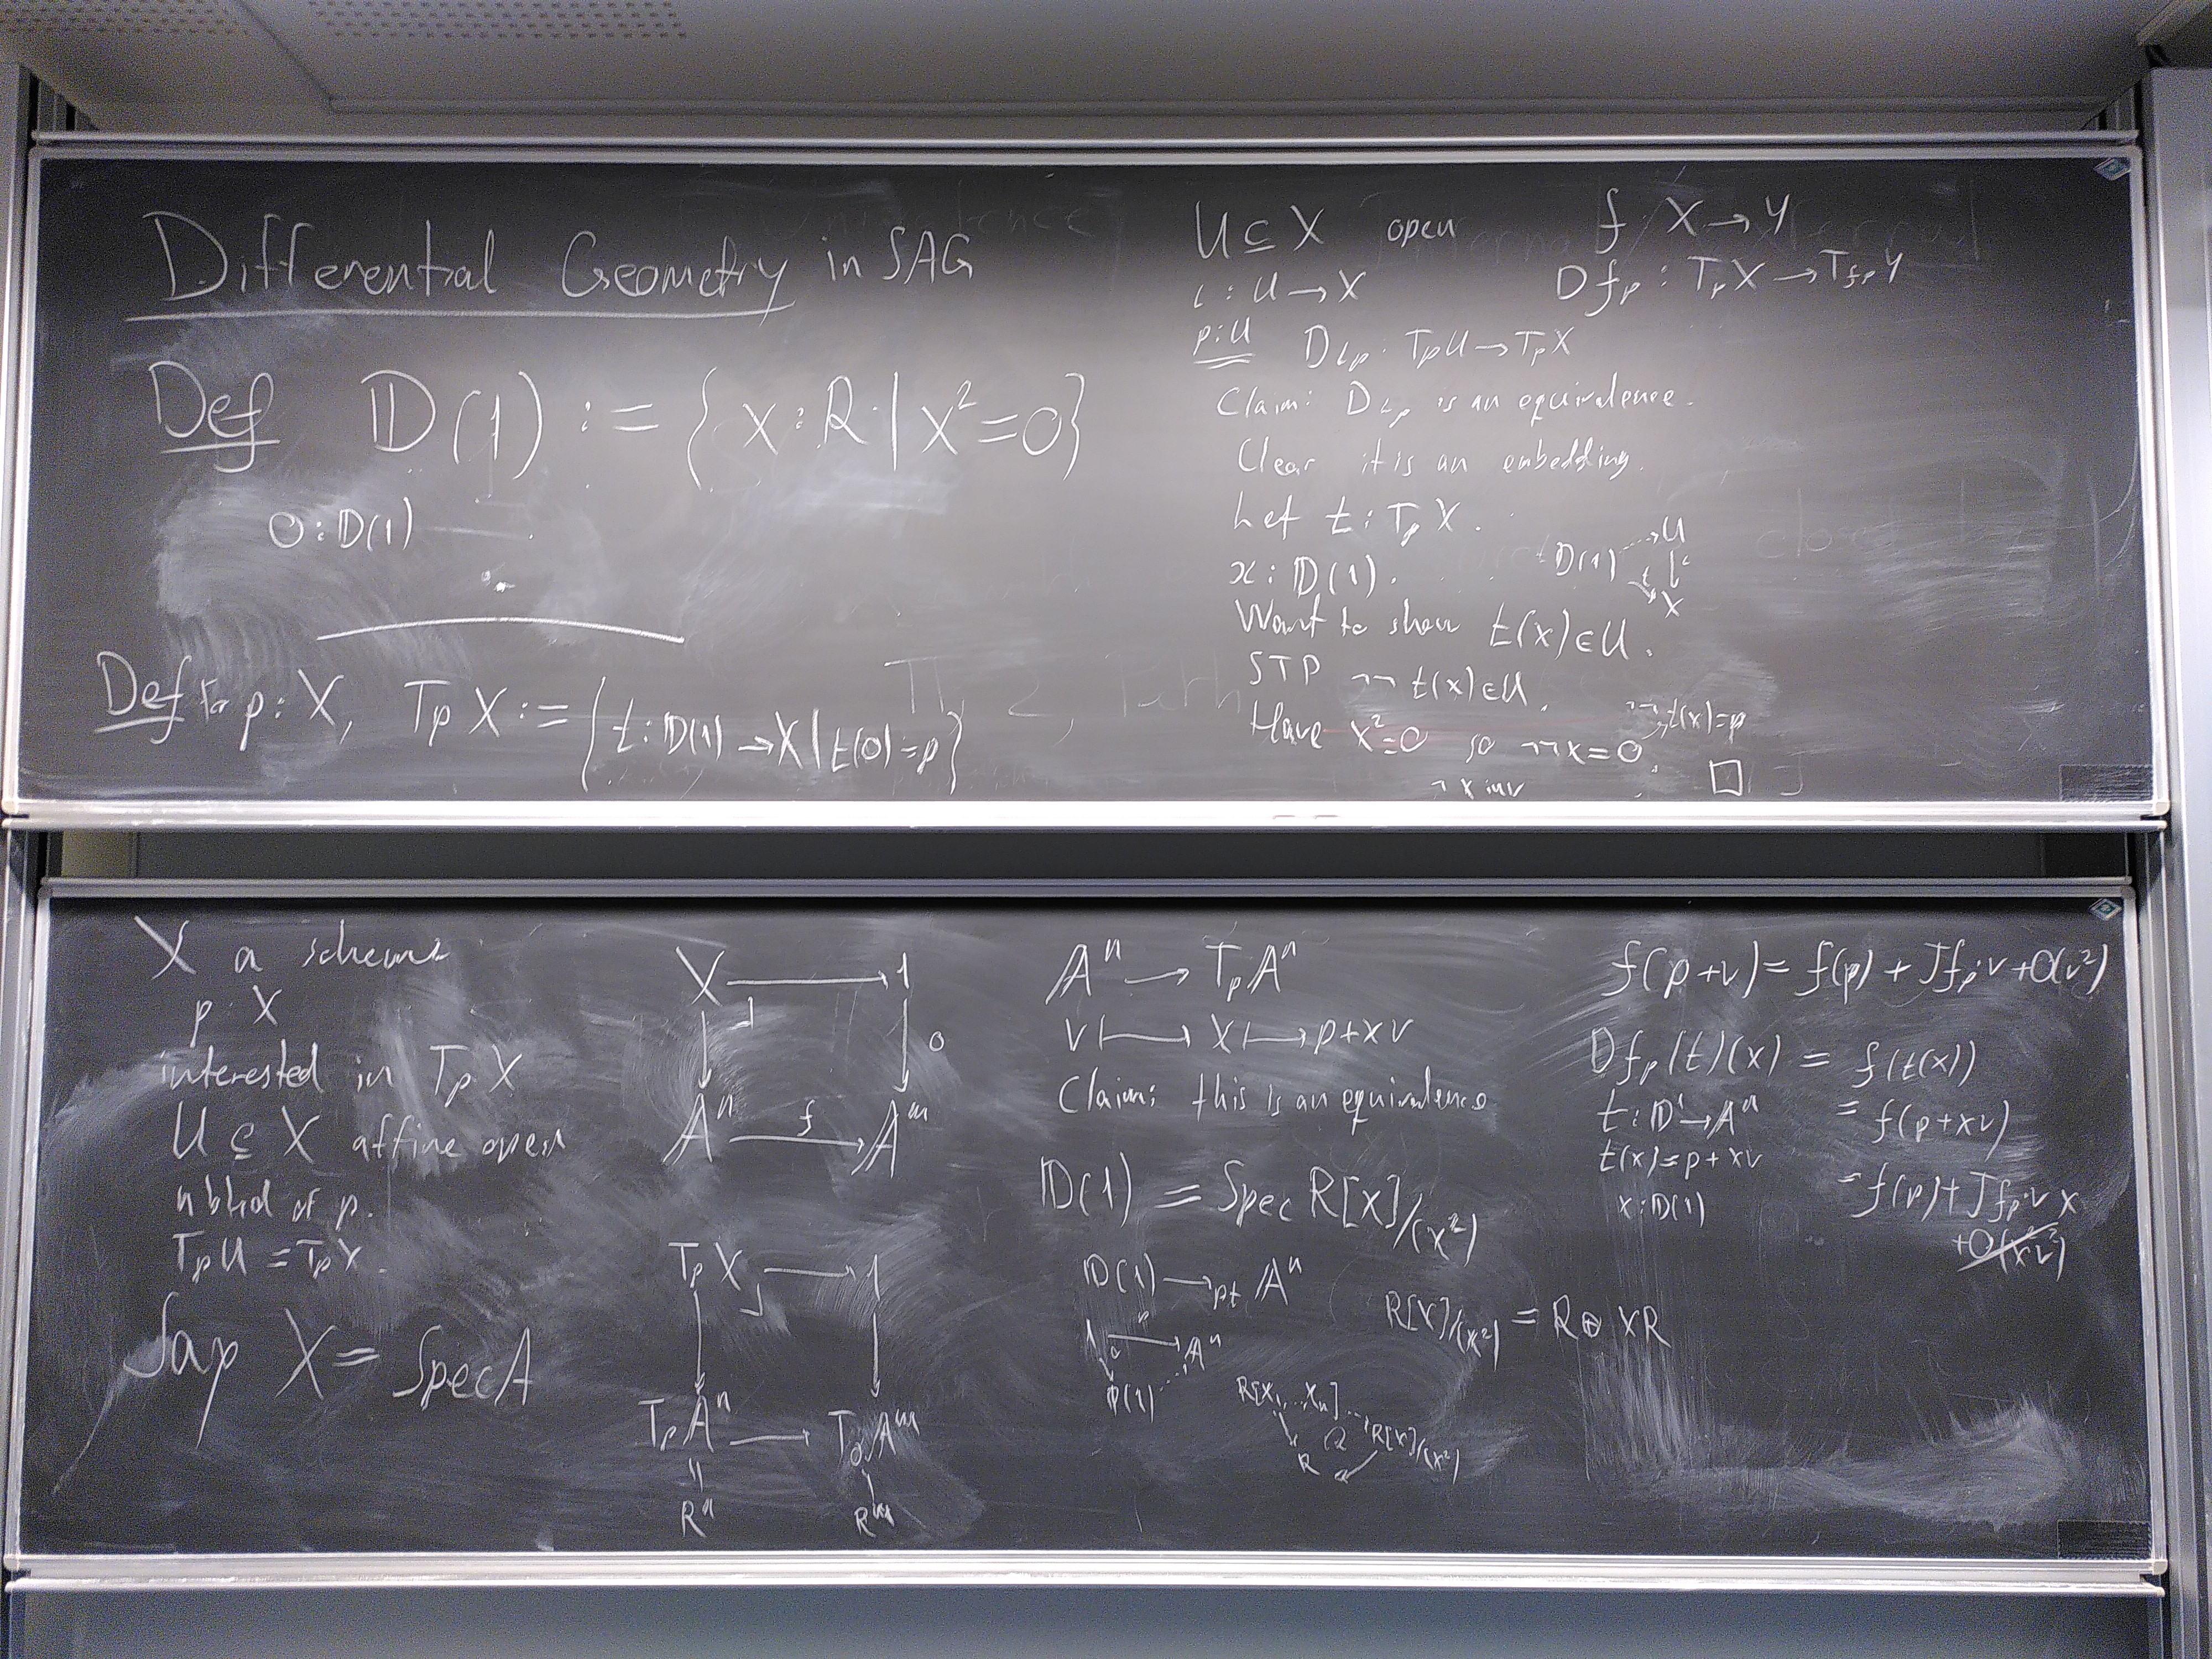 Differential Geometry in SAG
Def 𝔻(1) := {x:R | x²=0}
0:𝔻(1)
Def for p:X, TₚX := {t:𝔻(1)→X | t(0)=p}
U⊆X open
ι:U→X
p:U Dιₚ: TₚU→TₚX
f X→Y
Dfₚ: TₚX→T_{fp}Y
Claim: Dιₚ is an equivalence.
Clear it is an embedding.
Let t:TₚX.
x:𝔻(1).
𝔻(1) U
t ι
X
Want to show t(x)∈U.
STP ¬¬ t(x)∈U.
Have x²=0 so ¬¬x=0, ¬¬t(x)=p
¬x inv □
X a scheme
p:X
interested in TₚX
U⊆X affine open
nbhd of p.
TₚU = TₚX.
Say X = Spec A
X → 1
0
𝔸ⁿ f→ 𝔸ᵐ
TₚX → 1
Tₚ𝔸ⁿ → T₀𝔸ᵐ
Rⁿ Rᵐ
𝔸ⁿ → Tₚ𝔸ⁿ
v ↦ x ↦ p+xv
Claim: this is an equivalence
𝔻(1) = Spec R[X]/(x²)
𝔻(1) →pt 𝔸ⁿ
1 p→ 𝔸ⁿ
0
𝔻(1)
R[X]/(x²) = R⊕XR
R[X₁...Xₙ] → R[X]/(x²)
R
f(p+v) = f(p) + Jfₚ·v + O(v²)
Dfₚ(t)(x) = f(t(x))
t:𝔻¹→𝔸ⁿ = f(p+xv)
t(x)=p+xv
= f(p)+Jfₚ·v x
x:𝔻(1)
+O(xv²)